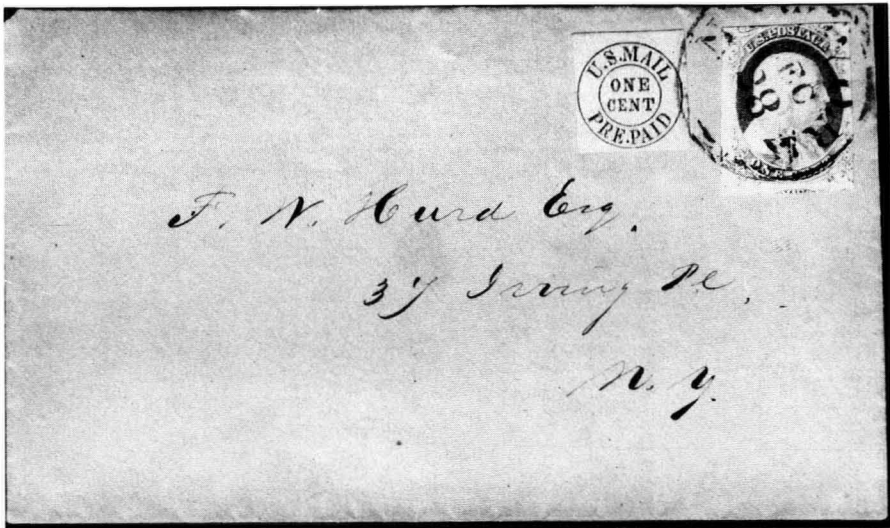 U.S.MAIL
ONE
CENT
PRE-PAID
U.S. POSTAGE
F. N. Hurd Esq.
37 Irving Pl.
N. Y.